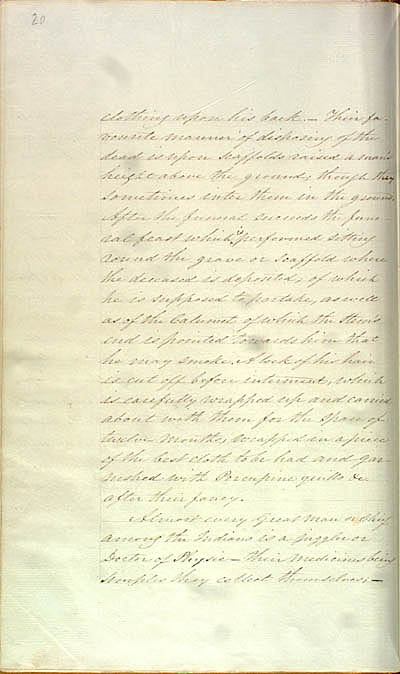 20
clothing upon his back. – Their fa-
vourite manner of disposing of the
dead is upon scaffolds raised a man's
height above the ground, though they
sometimes inter them in the ground.
After the funeral succeeds the fune-
ral feast which is performed sitting
round the grave or scaffold where
the deceased is deposited; of which
he is supposed to partake, as well
as of the Calumet of which the Stem's
end is pointed towards him that
he may smoke. A lock of his hair
is cut off before interment, which
is carefully wrapped up and carried
about with them for the space of
twelve months, wrapped in a piece
of the best cloth to be had and gar-
nished with Porcupine quills &c
after their fancy.
Almost every Great man or Chief
among the Indians is a juggler or
Doctor of Physic – their medicines being
simples they collect themselves; –